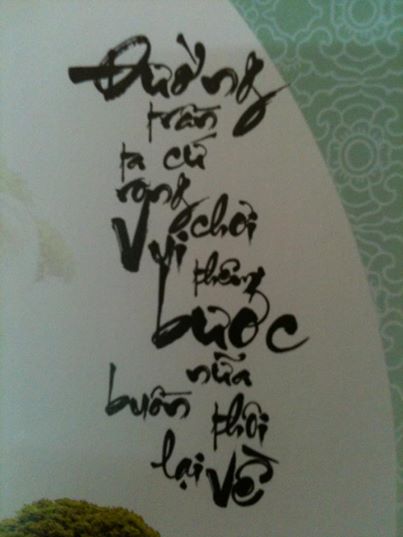 Đường
trần
ta cứ
rong
chơi
Vui
thêm
bước
nữa
buồn thôi
lại về